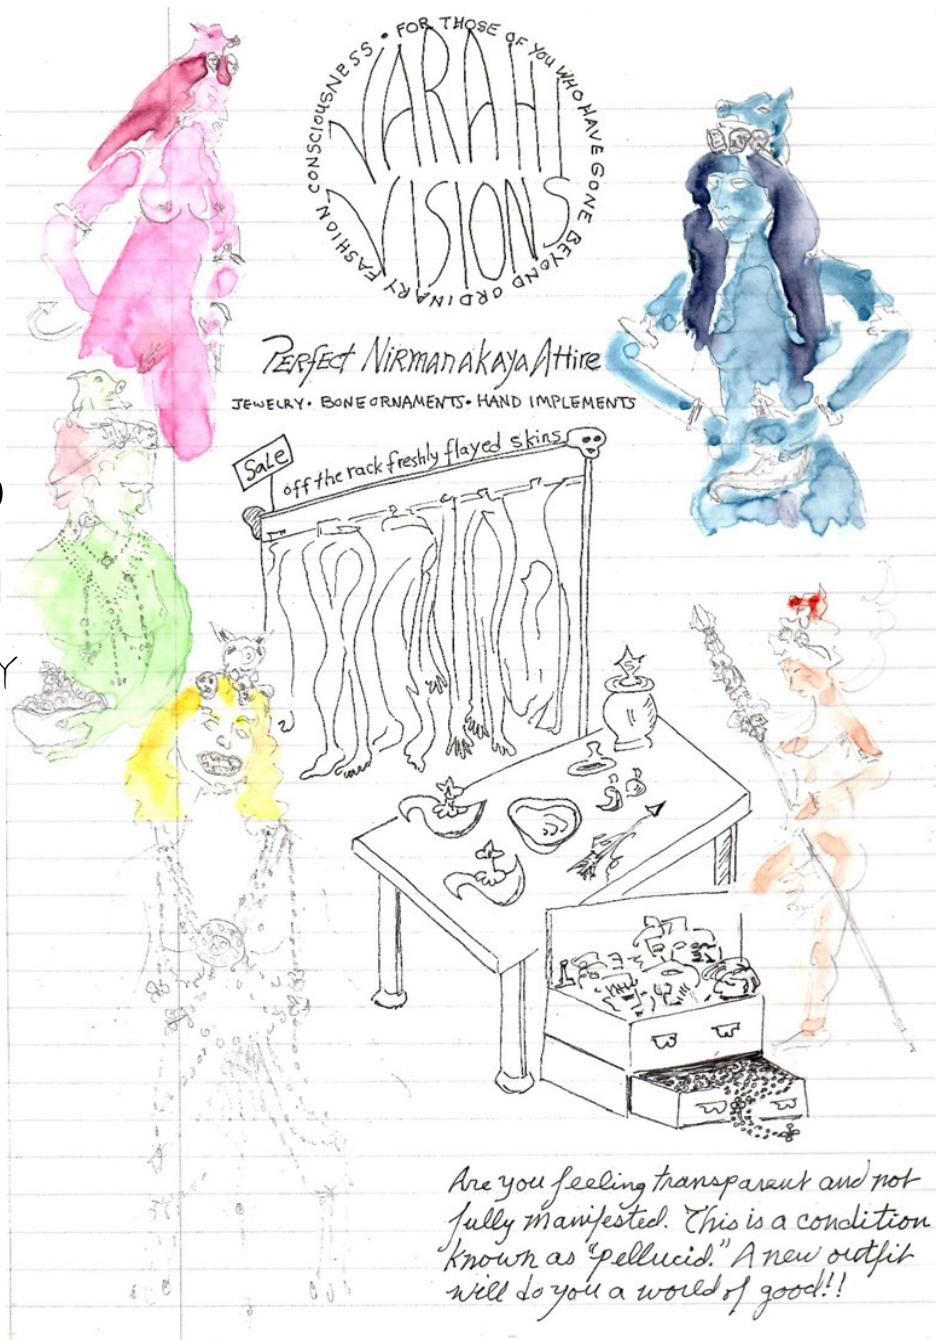 FOR THOSE OF YOU WHO HAVE GONE BEYOND ORDINARY FASHION CONSCIOUSNESS •
VARAHI
VISIONS
Perfect Nirmanakaya Attire
JEWELRY • BONE ORNAMENTS • HAND IMPLEMENTS
Sale
off the rack freshly flayed skins
Are you feeling transparent and not
fully manifested. This is a condition
known as "pellucid." A new outfit
will do you a world of good!!